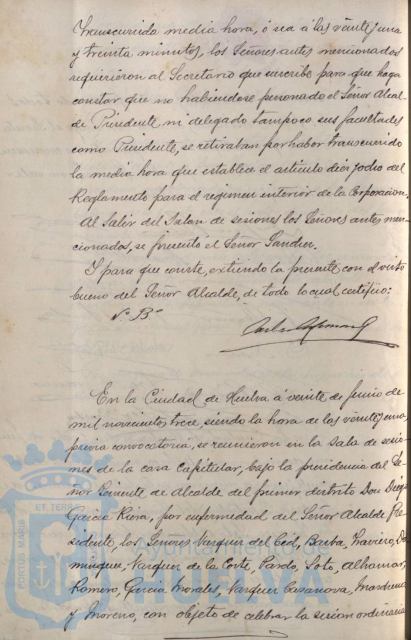 Transcurrida media hora, ó sea á las veintiuna
y treinta minutos, los Señores antes mencionados
requirieron al Secretario que suscribe para que haga
constar que no habiendose personado el Señor Alcal-
de Presidente ni delegado tampoco sus facultades
como Presidente, se retiraban por haber transcurrido
la media hora que establece el articulo diez y ocho del
Reglamento para el regimen interior de la Corporacion.
Al Salir del Salon de sesiones los Señores antes men-
cionados, se presentó el Señor Sanchez.
Y para que conste, extiendo la presente con el visto
bueno del Señor Alcalde, de todo lo cual certifico:
Vº Bº
En la Ciudad de Huelva á veinte de Junio de
mil novecientos trece, siendo la hora de las veintiuna,
previa convocatoria, se reunieron en la sala de sesio-
nes de la casa capitular, bajo la presidencia del Se-
ñor Teniente de Alcalde del primer distrito Don Diego
Garcia Riera, por enfermedad del Señor Alcalde Pre-
sidente, los Señores Vazquez del Cid, Barba, Traviero, Do-
minguez, Vazquez de la Corte, Pardo, Soto, Alhamar,
Romero, Garcia Morales, Vazquez Casanova, Marchena
y Moreno, con objeto de celebrar la sesion ordinaria
PORTUS MARIS
ET TERR
Ayuntamiento de
HUELVA